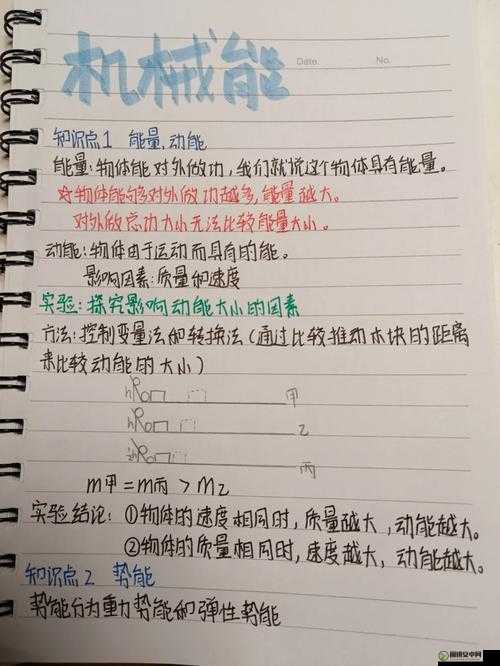 机械能
Date. No.
知识点1 能量,动能
能量:物体能对外做功,我们就说这个物体具有能量。
☆物体能够对外做功越多,能量越大。
对外做总功大小无法比较能量大小。
动能:物体由于运动而具有的能。
影响因素:质量和速度
实验:探究影响动能大小的因素
方法:控制变量法和转换法(通过比较推动木块的距离
来比较动能的大小)
甲
乙
丙
m甲=m丙>m乙
实验结论:①物体的速度相同时,质量越大,动能越大。
②物体的质量相同时,速度越大,动能越大。
知识点2 势能
势能分为重力势能和弹性势能